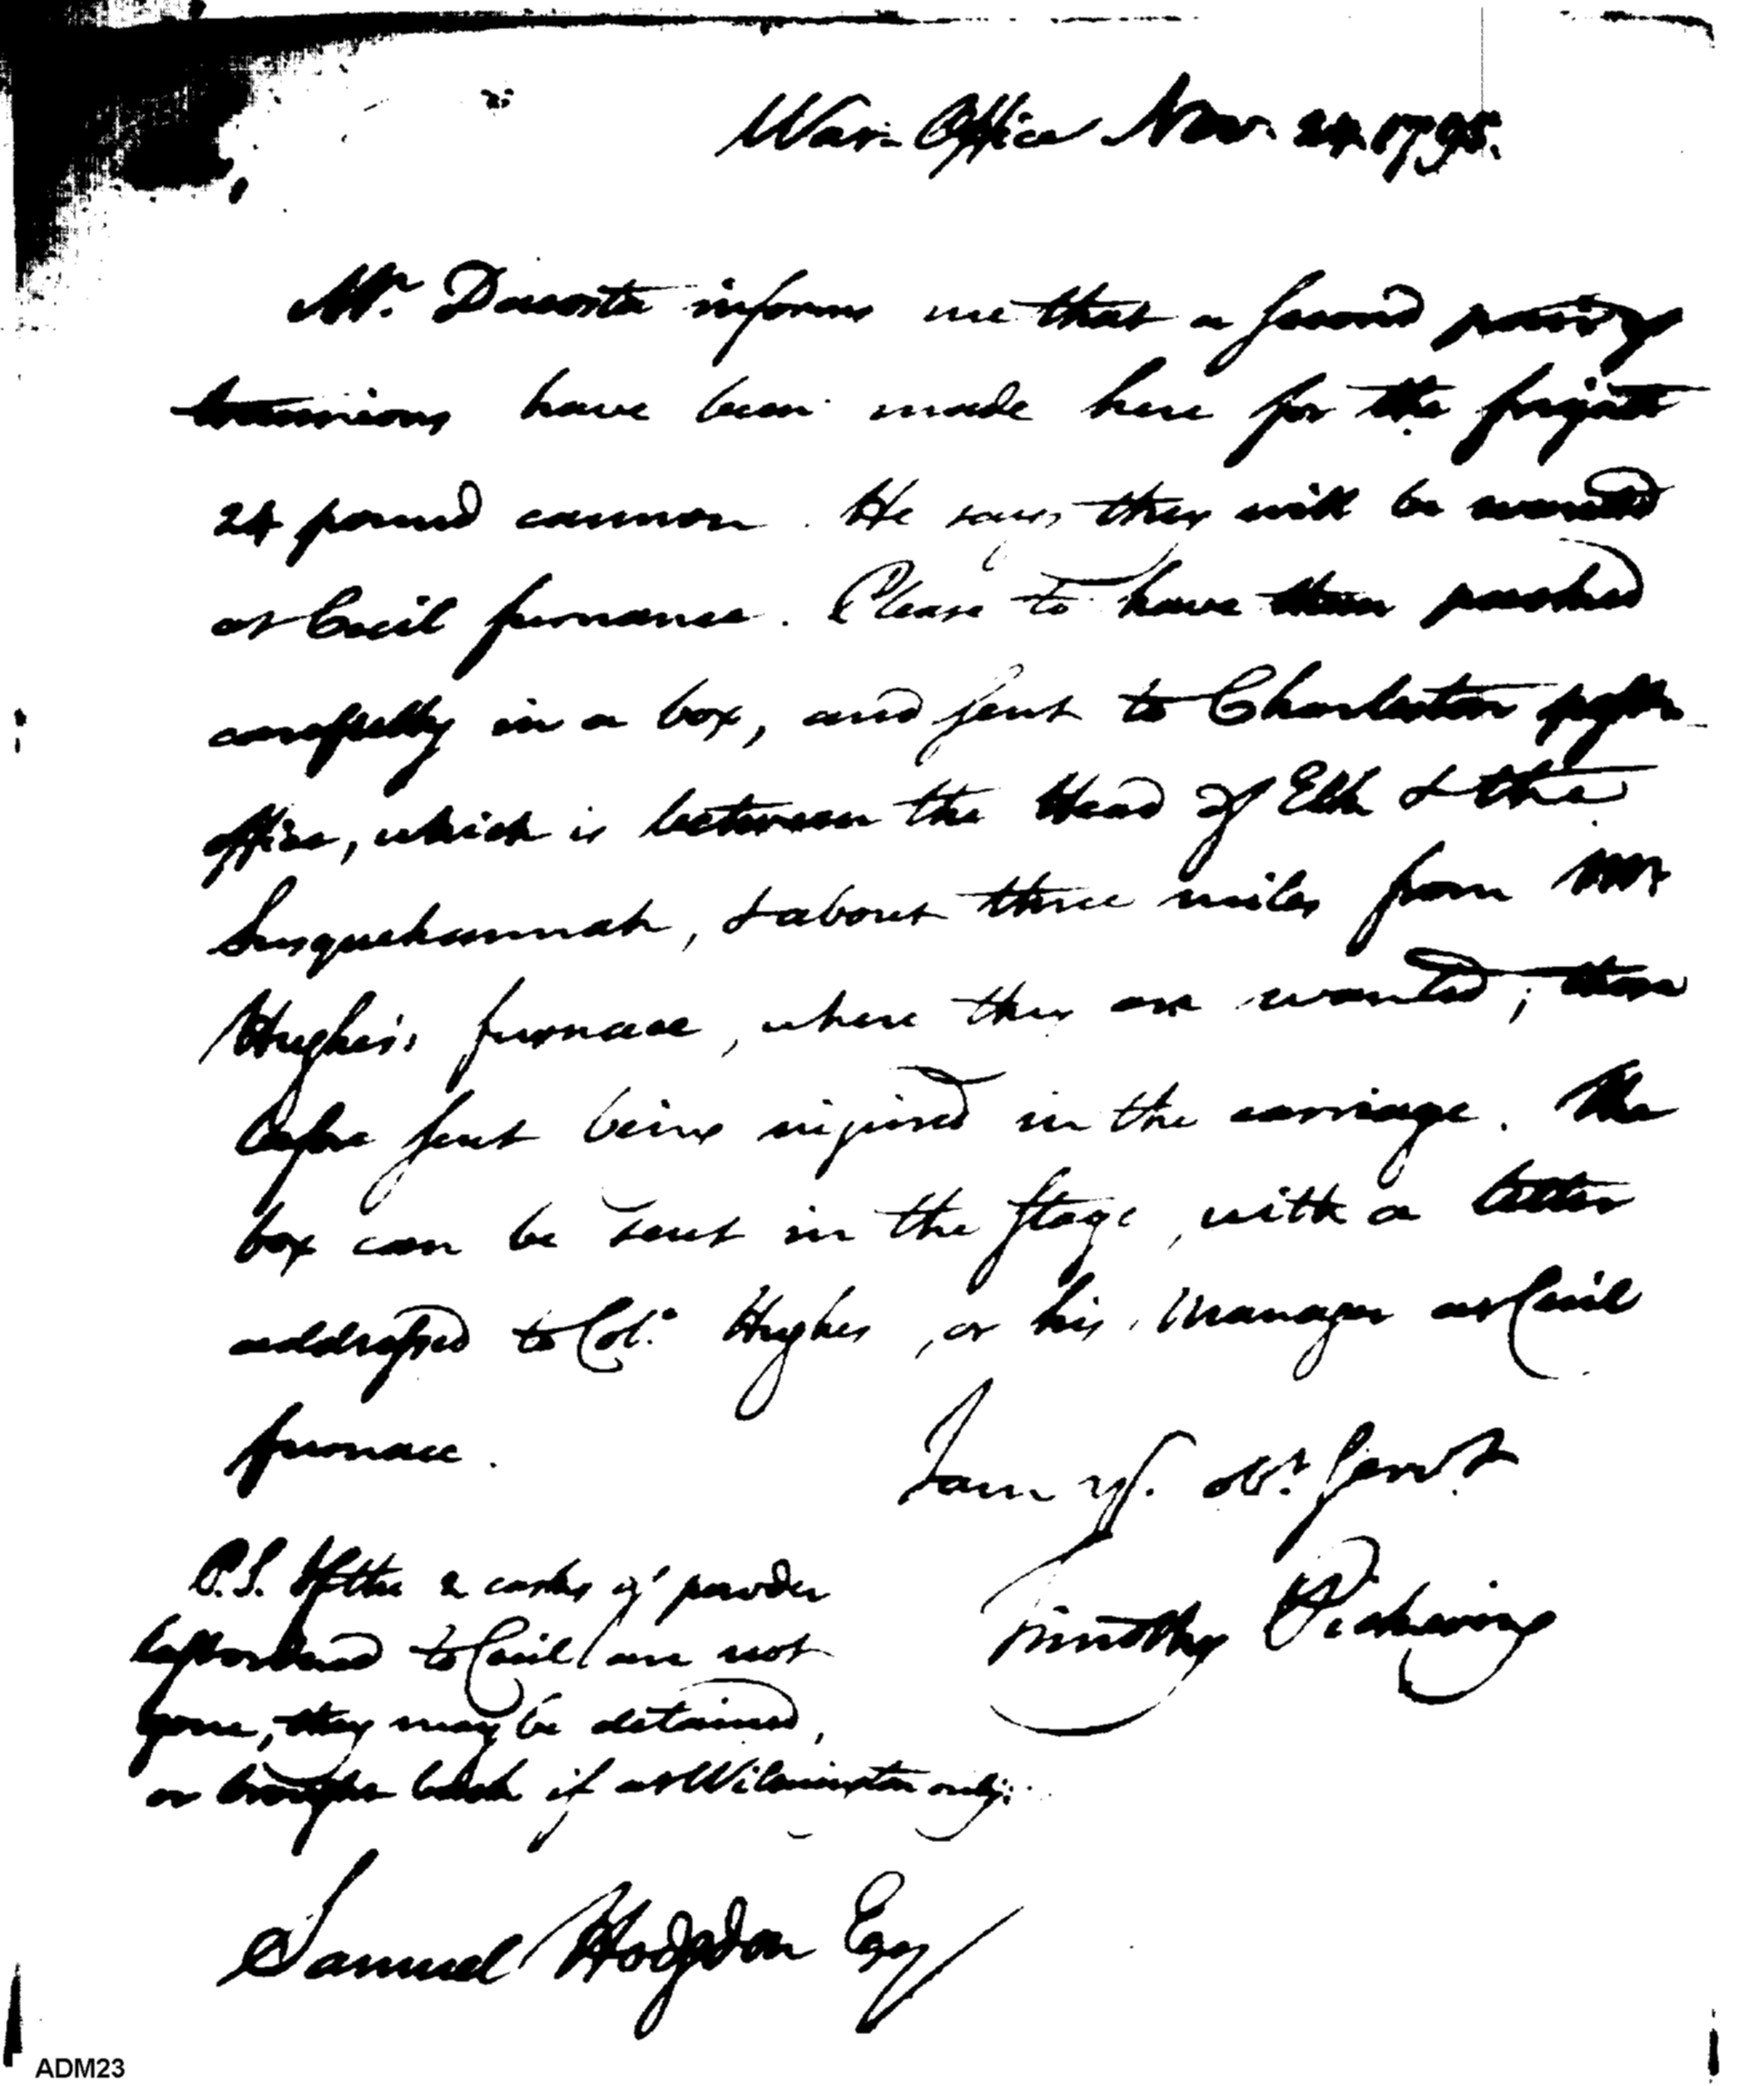 War Office Nov. 24. 1795.
Mr. informs me that a found
trunnions have been made here for the frigate
24 pound cannon. He says they will be wanted
at Cecil furnace. Please to have them packed
carefully in a box, and sent to Charleston post
office, which is between the Head of Elk & the
Susquehannah, & about three miles from Mr
Hughes's furnace, where they are wanted; those
before sent being injured in the carriage. The
box can be sent in the stage, with a letter
addressed to Col. Hughes, or his manager at Cecil
furnace.
I am yr. ob. servt.
Timothy Pickering
P.S. If the 2 casks of powder
to Cecil are not
gone, they may be detained,
or brought back if at Wilmington only.
Samuel Hodgdon Esq
ADM23